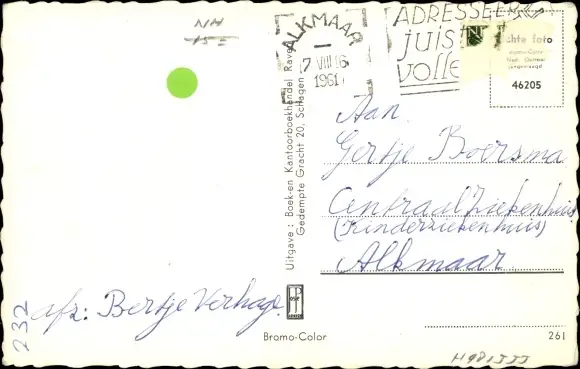 NH
15=
ALKMAAR
17 VIII 16
1961
ADRESSEER
juist
volle
chte foto
Bromo-Color
46205
Uitgave: Boek-en Kantoorboekhandel Raven
Gedempte Gracht 20, Schagen
Aan.
Gertje Boersma
Centraalziekenhuis
(Kinderziekenhuis)
Alkmaar.
afz: Bertje Verhage.
232
Bromo-Color
261
H981555